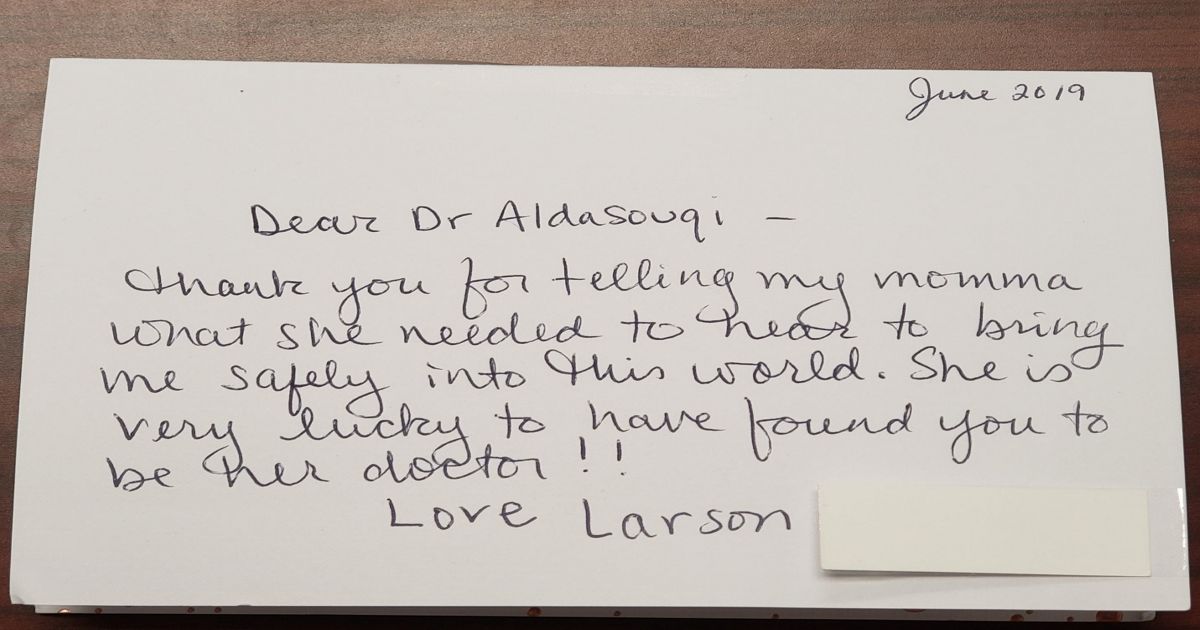 June 2019
Dear Dr Aldasouqi –
Thank you for telling my momma
what she needed to hear to bring
me safely into this world. She is
very lucky to have found you to
be her doctor!!
Love Larson